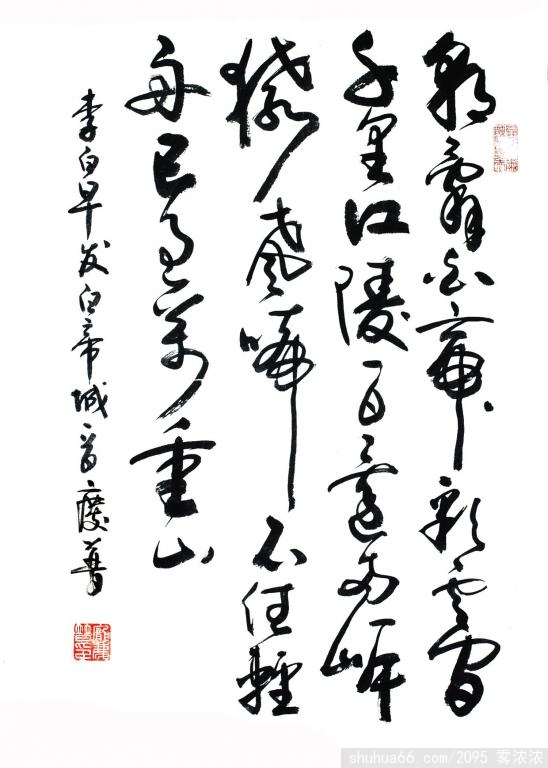 朝辭白帝彩雲間
千里江陵一日還兩岸
猿聲啼不住輕
舟已過萬重山
李白早发白帝城一首
shuhua66.com/2095 雾浓浓